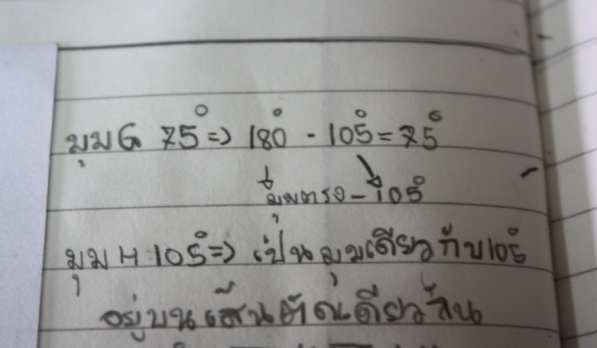 มุม G 75° => 180° - 105° = 75°
มุมตรง - 105°
มุม H 105° => เป็นมุมเดียวกับ 105°
อยู่บนเส้นตัดเดียวกัน